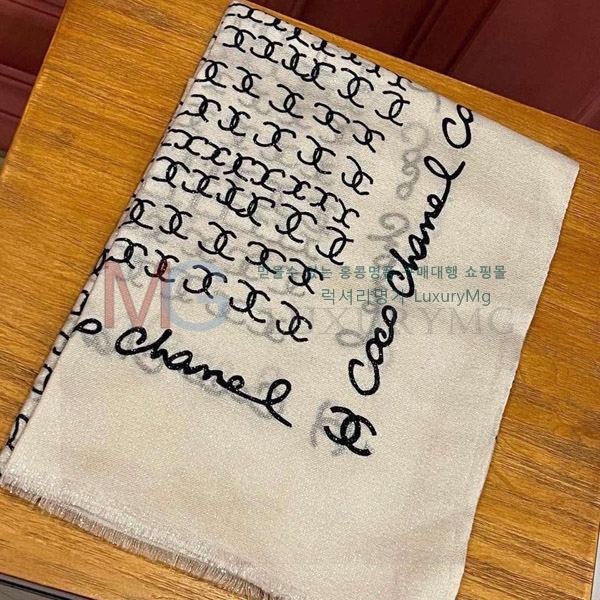 Coco Chanel Co
Chanel
MG
믿을수 있는 홍콩명품 구매대행 쇼핑몰
럭셔리명가 LuxuryMg
LUXURYMG